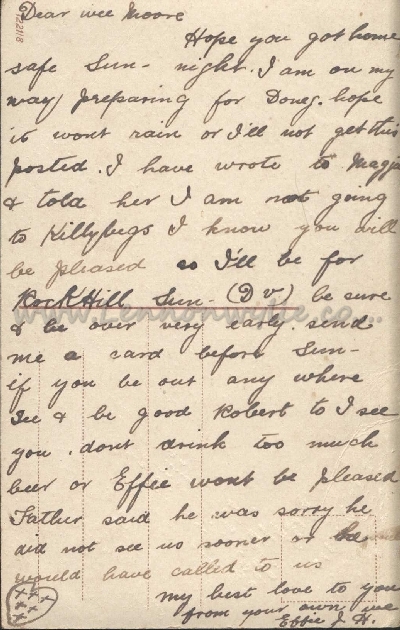 Dear wee Moore
Hope you got home
safe Sun- night. I am on my
way preparing for Doneg. hope
it wont rain or I'll not get this
posted. I have wrote to Maggie
& told her I am not going
to Killybegs I know you will
be pleased so I'll be for
RockHill Sun- (D V) be sure
& be over very early send
me a card before Sun-
if you be out any where
See & be good Robert to I see
you. dont drink too much
beer or Effie wont be pleased
Father said he was sorry he
did not see us sooner or he
would have called to us
my best love to you
from your own wee
Effie J. H.
x x x x x x
www.Lennonwylie.co...